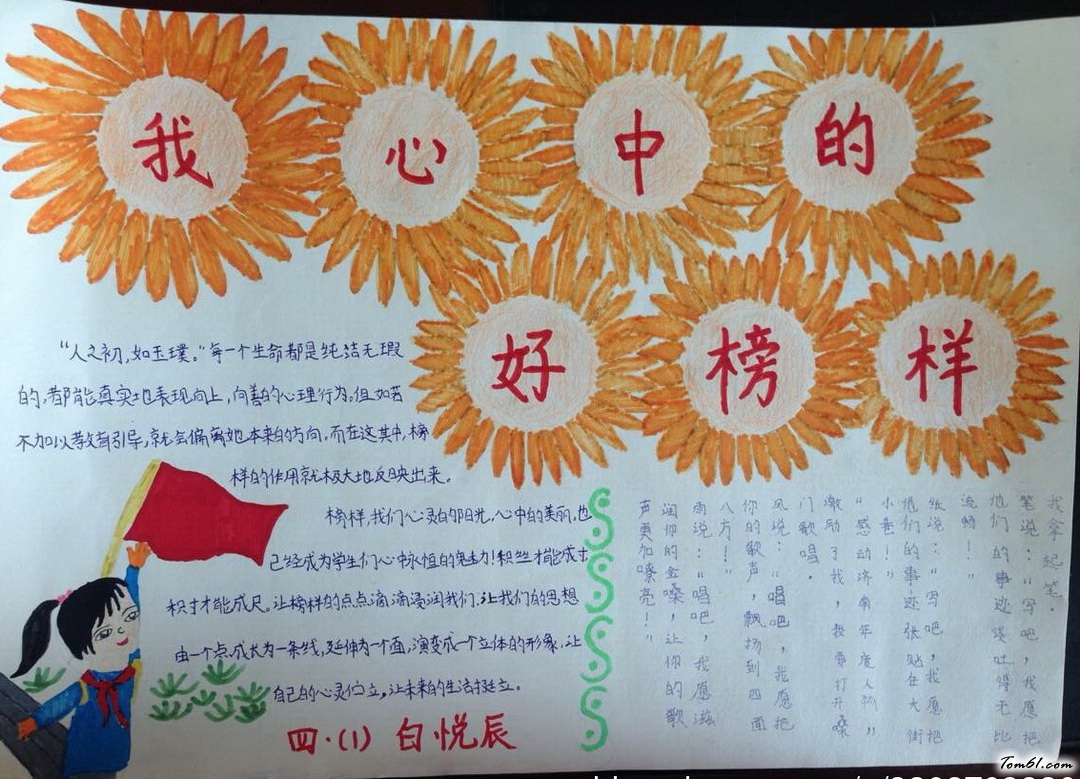 我心中的
好榜样
“人之初,如玉璞。”每一个生命都是纯洁无瑕
的,都能真实地表现向上,向善的心理行为。但如若
不加以教育引导,就会偏离她本来的方向,而在这其中,榜
样的作用就极大地反映出来。
榜样,我们心灵的阳光,心中的美丽,也
已经成为学生们心中永恒的魅力!积丝才能成寸
积寸才能成尺。让榜样的点点滴滴浸润我们,让我们的思想
由一个点,成长为一条线,延伸为一个面,演变成一个立体的形象,让
自己的心灵伫立,让未来的生活挺立。
四·(1) 白悦辰
我拿起笔。
笔说:“写吧,我愿把
他们的事迹谈吐得无比
流畅!”
纸说:“写吧,我愿把
他们的事迹张贴在大街
小巷!”
“感动济南年度人物”
激励了我,我要打开嗓
门歌唱。
风说:“唱吧,我愿把
你的歌声,飘扬到四面
八方!”
雨说:“唱吧,我愿滋
润你的金嗓,让你的歌
声更加亮!”
Tom61.com